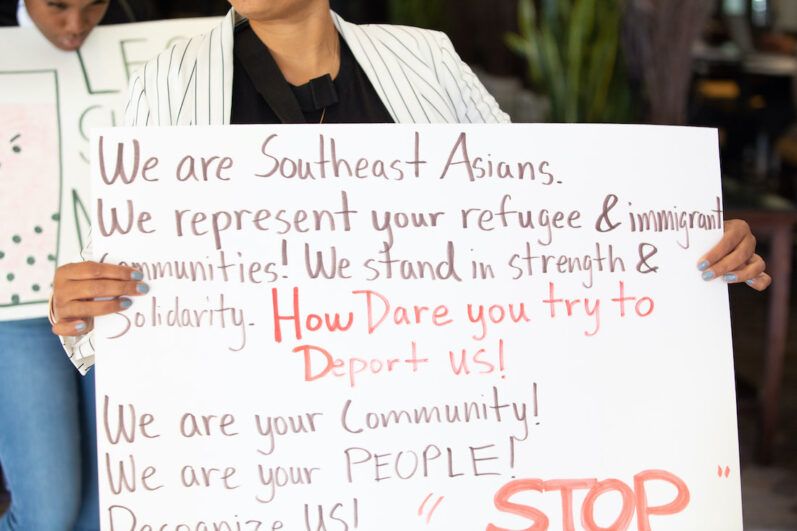 We are Southeast Asians.
We represent your refugee & immigrant
Communities! We stand in strength &
Solidarity. How Dare you try to
Deport us!
We are your Community!
We are your PEOPLE!
Recognize US! " STOP "